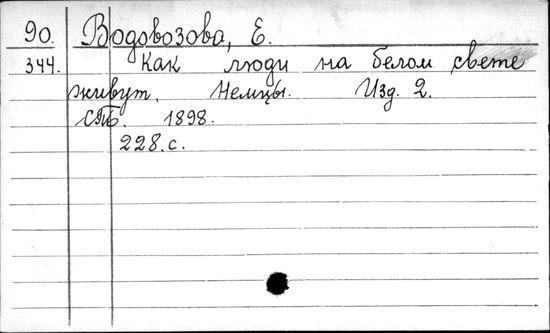 90. Водовозова, Е.
344. Как люди на белом свете
живут. Немцы. Изд. 2.
СПб. 1898.
228. с.